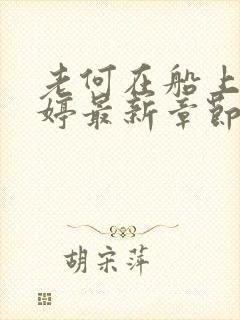 老何在船上
婷最新章节
胡宋萍